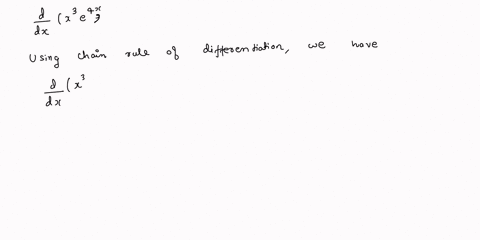 d/dx (x³ e⁴ˣ)
Using chain rule of differentiation, we have
d/dx (x³